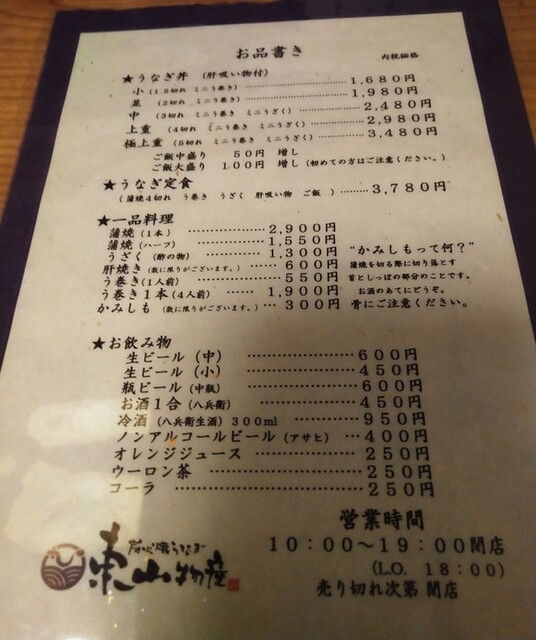 お品書き 内税価格
★うなぎ丼 (肝吸い物付)
小 (1.5切れ ミニう巻き) 1,680円
並 (2切れ ミニう巻き) 1,980円
中 (3切れ ミニう巻き ミニうざく) 2,480円
上重 (4切れ ミニう巻き ミニうざく) 2,980円
極上重 (5切れ ミニう巻き ミニうざく) 3,480円
ご飯中盛り 50円 増し
ご飯大盛り 100円 増し (初めての方はご注意ください。)
★うなぎ定食
(蒲焼4切れ う巻き うざく 肝吸い物 ご飯) ………3,780円
★一品料理
蒲焼 (1本) ………………2,900円
蒲焼 (ハーフ) ……………1,550円
うざく (酢の物) …………1,300円
肝焼き (数に限りがございます。) ………600円
う巻き (1人前) ………………550円
う巻き1本 (4人前) ……1,900円
かみしも (数に限りがございます。) …300円
"かみしもって何?"
蒲焼を切る際に切り落とす
首としっぽの部分のことです。
お酒のあてにどうぞ。
骨にご注意ください。
★お飲み物
生ビール (中) ………………600円
生ビール (小) ………………450円
瓶ビール (中瓶) ………………600円
お酒1合 (八兵衛) ………………450円
冷酒 (八兵衛生酒) 300ml ………950円
ノンアルコールビール (アサヒ) …400円
オレンジジュース ……………250円
ウーロン茶 ……………………250円
コーラ …………………………250円
営業時間
10:00〜19:00閉店
(L.O. 18:00)
売り切れ次第 閉店
炭火焼うなぎ
東山物産